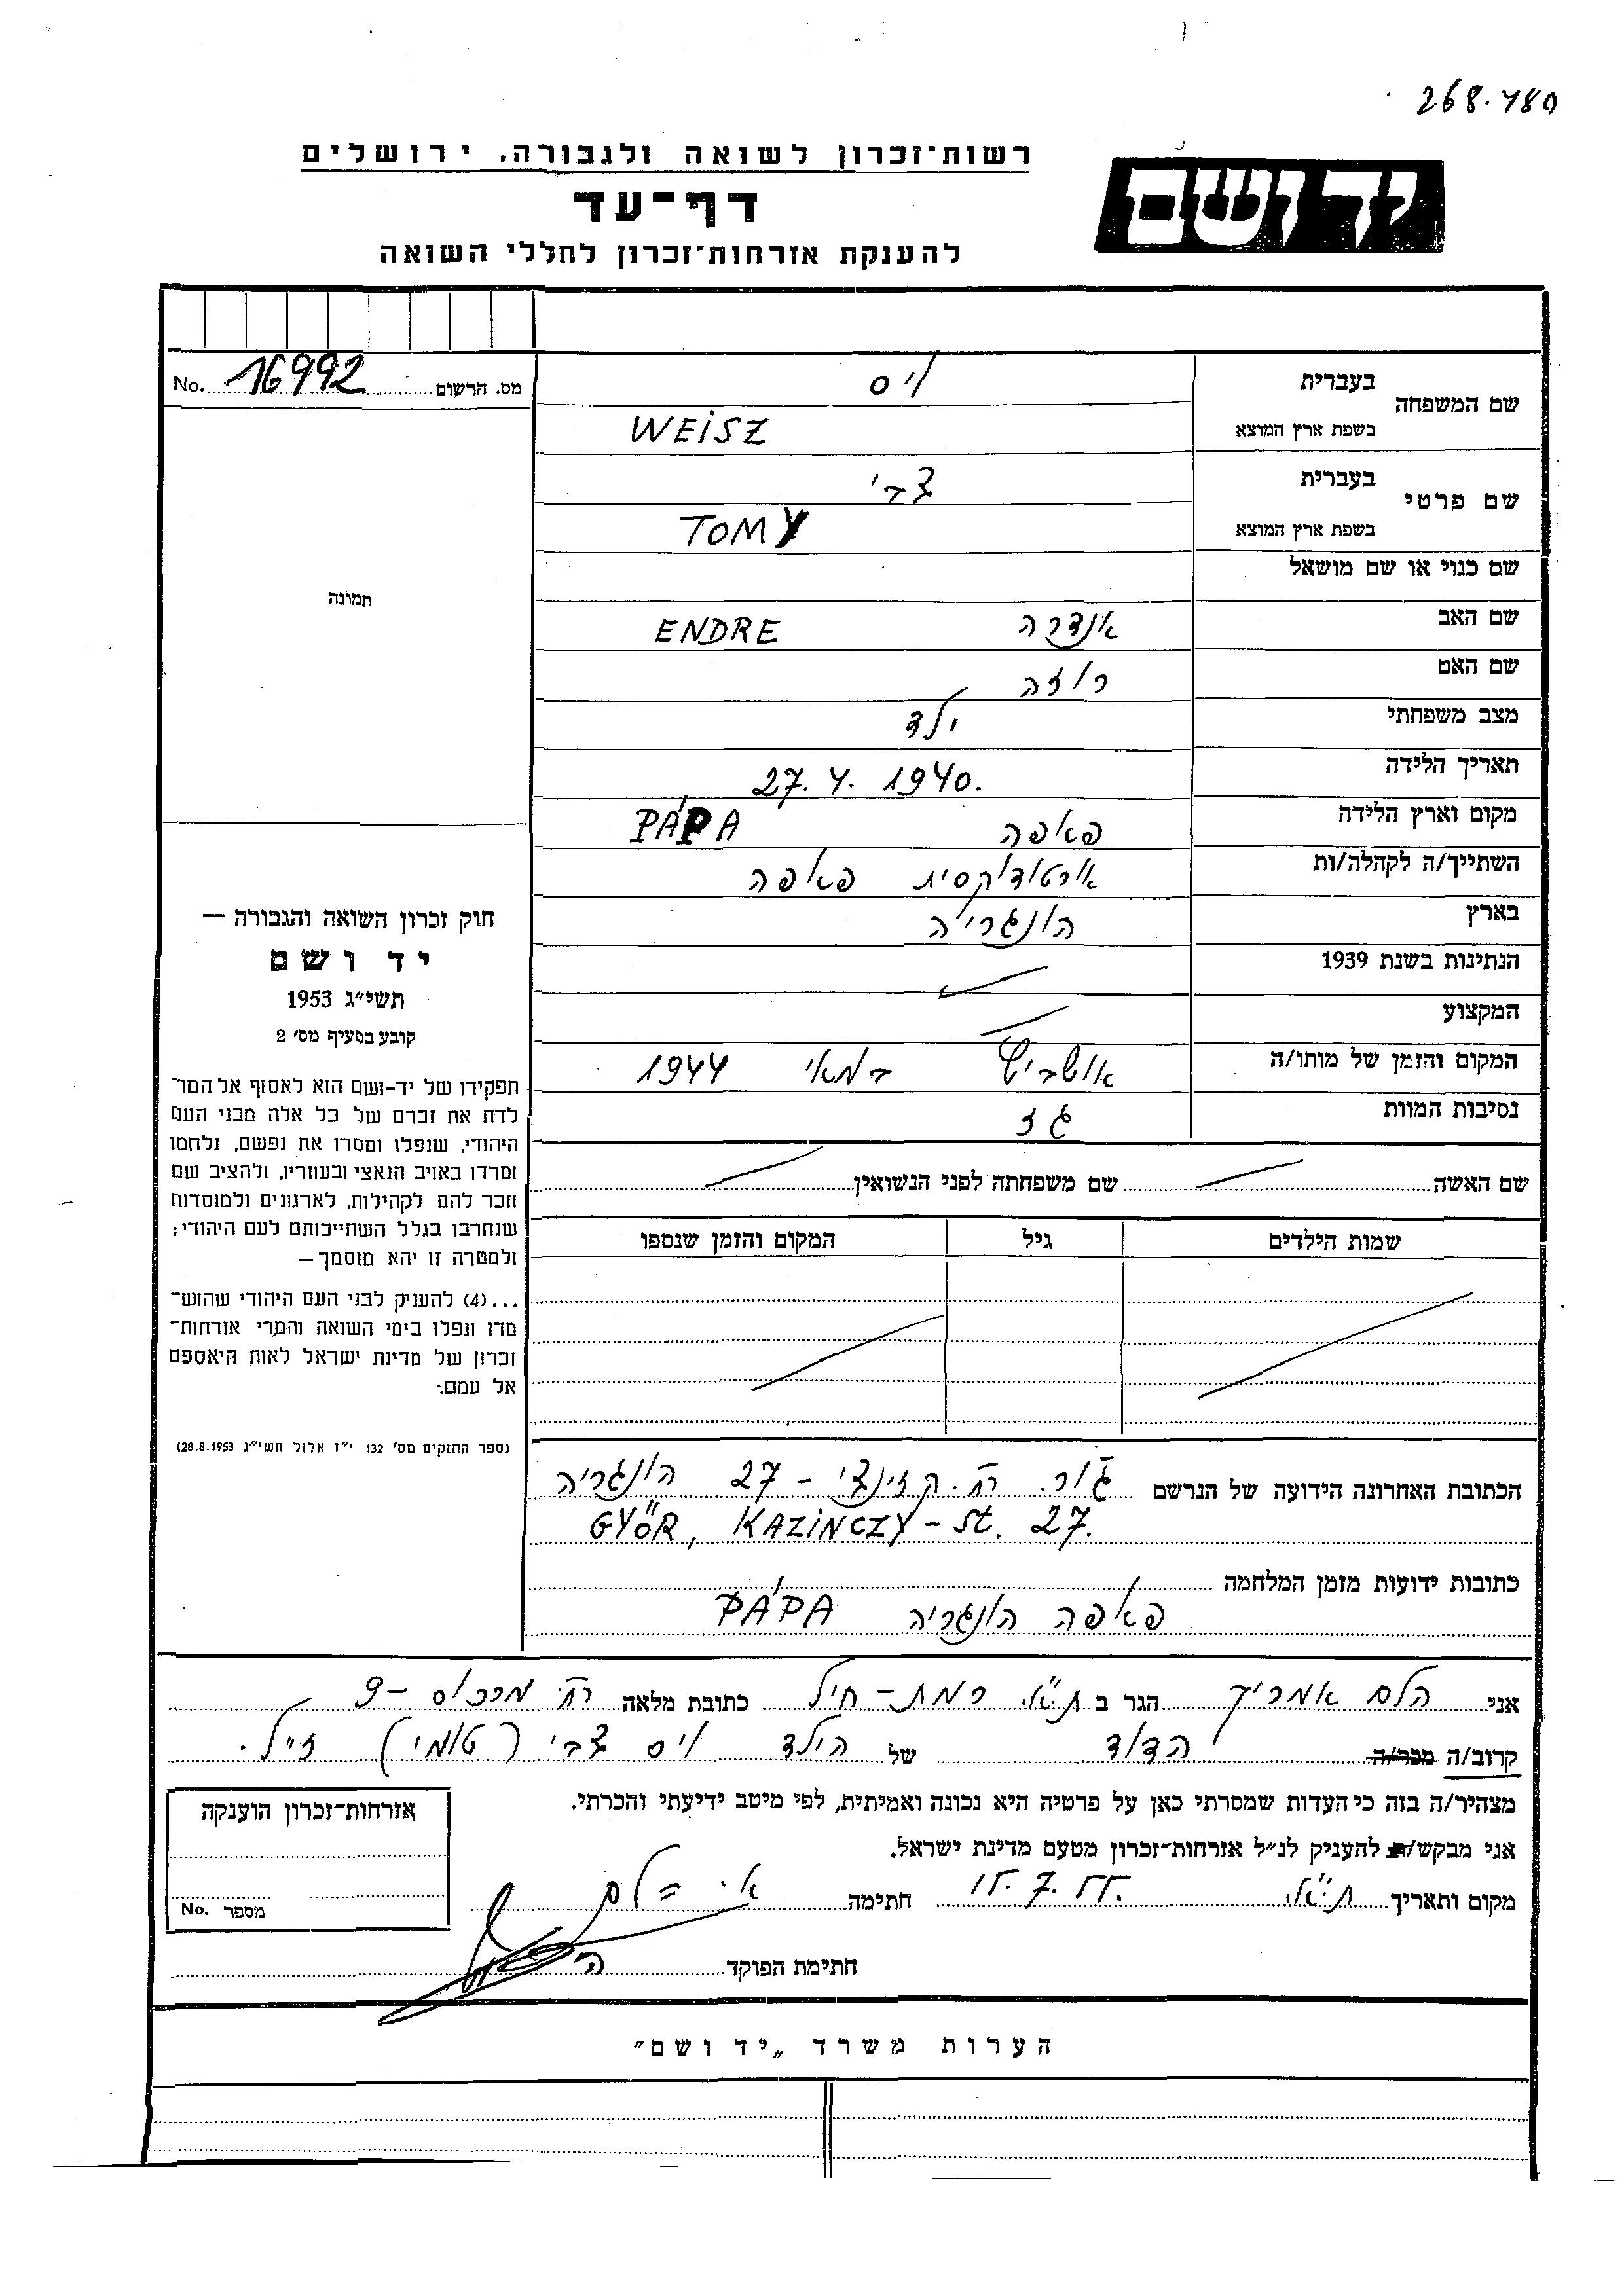 268.480
רשות־זכרון לשואה ולגבורה, ירושלים
יד ושם
דף־עד
להענקת אזרחות־זכרון לחללי השואה
מס. הרשום 16992 No.
שם המשפחה
בעברית ויס
בשפת ארץ המוצא WEISZ
שם פרטי
בעברית צבי
בשפת ארץ המוצא TOMY
שם כנוי או שם מושאל
שם האב אנדרה ENDRE
שם האם רוזה
מצב משפחתי ילד
תאריך הלידה 27.4.1940.
מקום וארץ הלידה פאפה PÁPA
השתייך/ה לקהלה/ות אורטודוקסית פאפה
בארץ הונגריה
הנתינות בשנת 1939
המקצוע
המקום והזמן של מותו/ה אושביץ במאי 1944
נסיבות המוות גז
שם האשה שם משפחתה לפני הנשואין
שמות הילדים גיל המקום והזמן שנספו
תמונה
חוק זכרון השואה והגבורה —
יד ושם
תשי״ג 1953
קובע בסעיף מס׳ 2
תפקידו של יד-ושם הוא לאסוף אל המו־
לדת את זכרם של כל אלה מבני העם
היהודי, שנפלו ומסרו את נפשם, נלחמו
ומרדו באויב הנאצי ובעוזריו, ולהציב שם
וזכר להם לקהילות, לארגונים ולמוסדות
שנחרבו בגלל השתייכותם לעם היהודי;
ולמטרה זו יהא מוסמך —
...(4) להעניק לבני העם היהודי שהוש־
מדו ונפלו בימי השואה והמרי אזרחות־
זכרון של מדינת ישראל לאות היאספם
אל עמם.
(ספר החוקים מס׳ 132 י״ז אלול תשי״ג 28.8.1953)
הכתובת האחרונה הידועה של הנרשם גור. רח. קזינצי – 27 הונגריה
GYŐR, KAZINCZY – St. 27.
כתובות ידועות מזמן המלחמה
פאפה הונגריה PÁPA
אני הלם אמריך הגר ב ת״א. רמת-חיל כתובת מלאה רח׳ מרכוס – 9
קרוב/ה מכר/ה הדוד של הילד ויס צבי (טומי) ז״ל.
מצהיר/ה בזה כי העדות שמסרתי כאן על פרטיה היא נכונה ואמיתית, לפי מיטב ידיעתי והכרתי.
אני מבקש/ת להעניק לנ״ל אזרחות־זכרון מטעם מדינת ישראל.
מקום ותאריך ת״א. 15.7.55. חתימה א. הלם
חתימת הפוקד
אזרחות־זכרון הוענקה
מספר No.
הערות משרד „יד ושם״